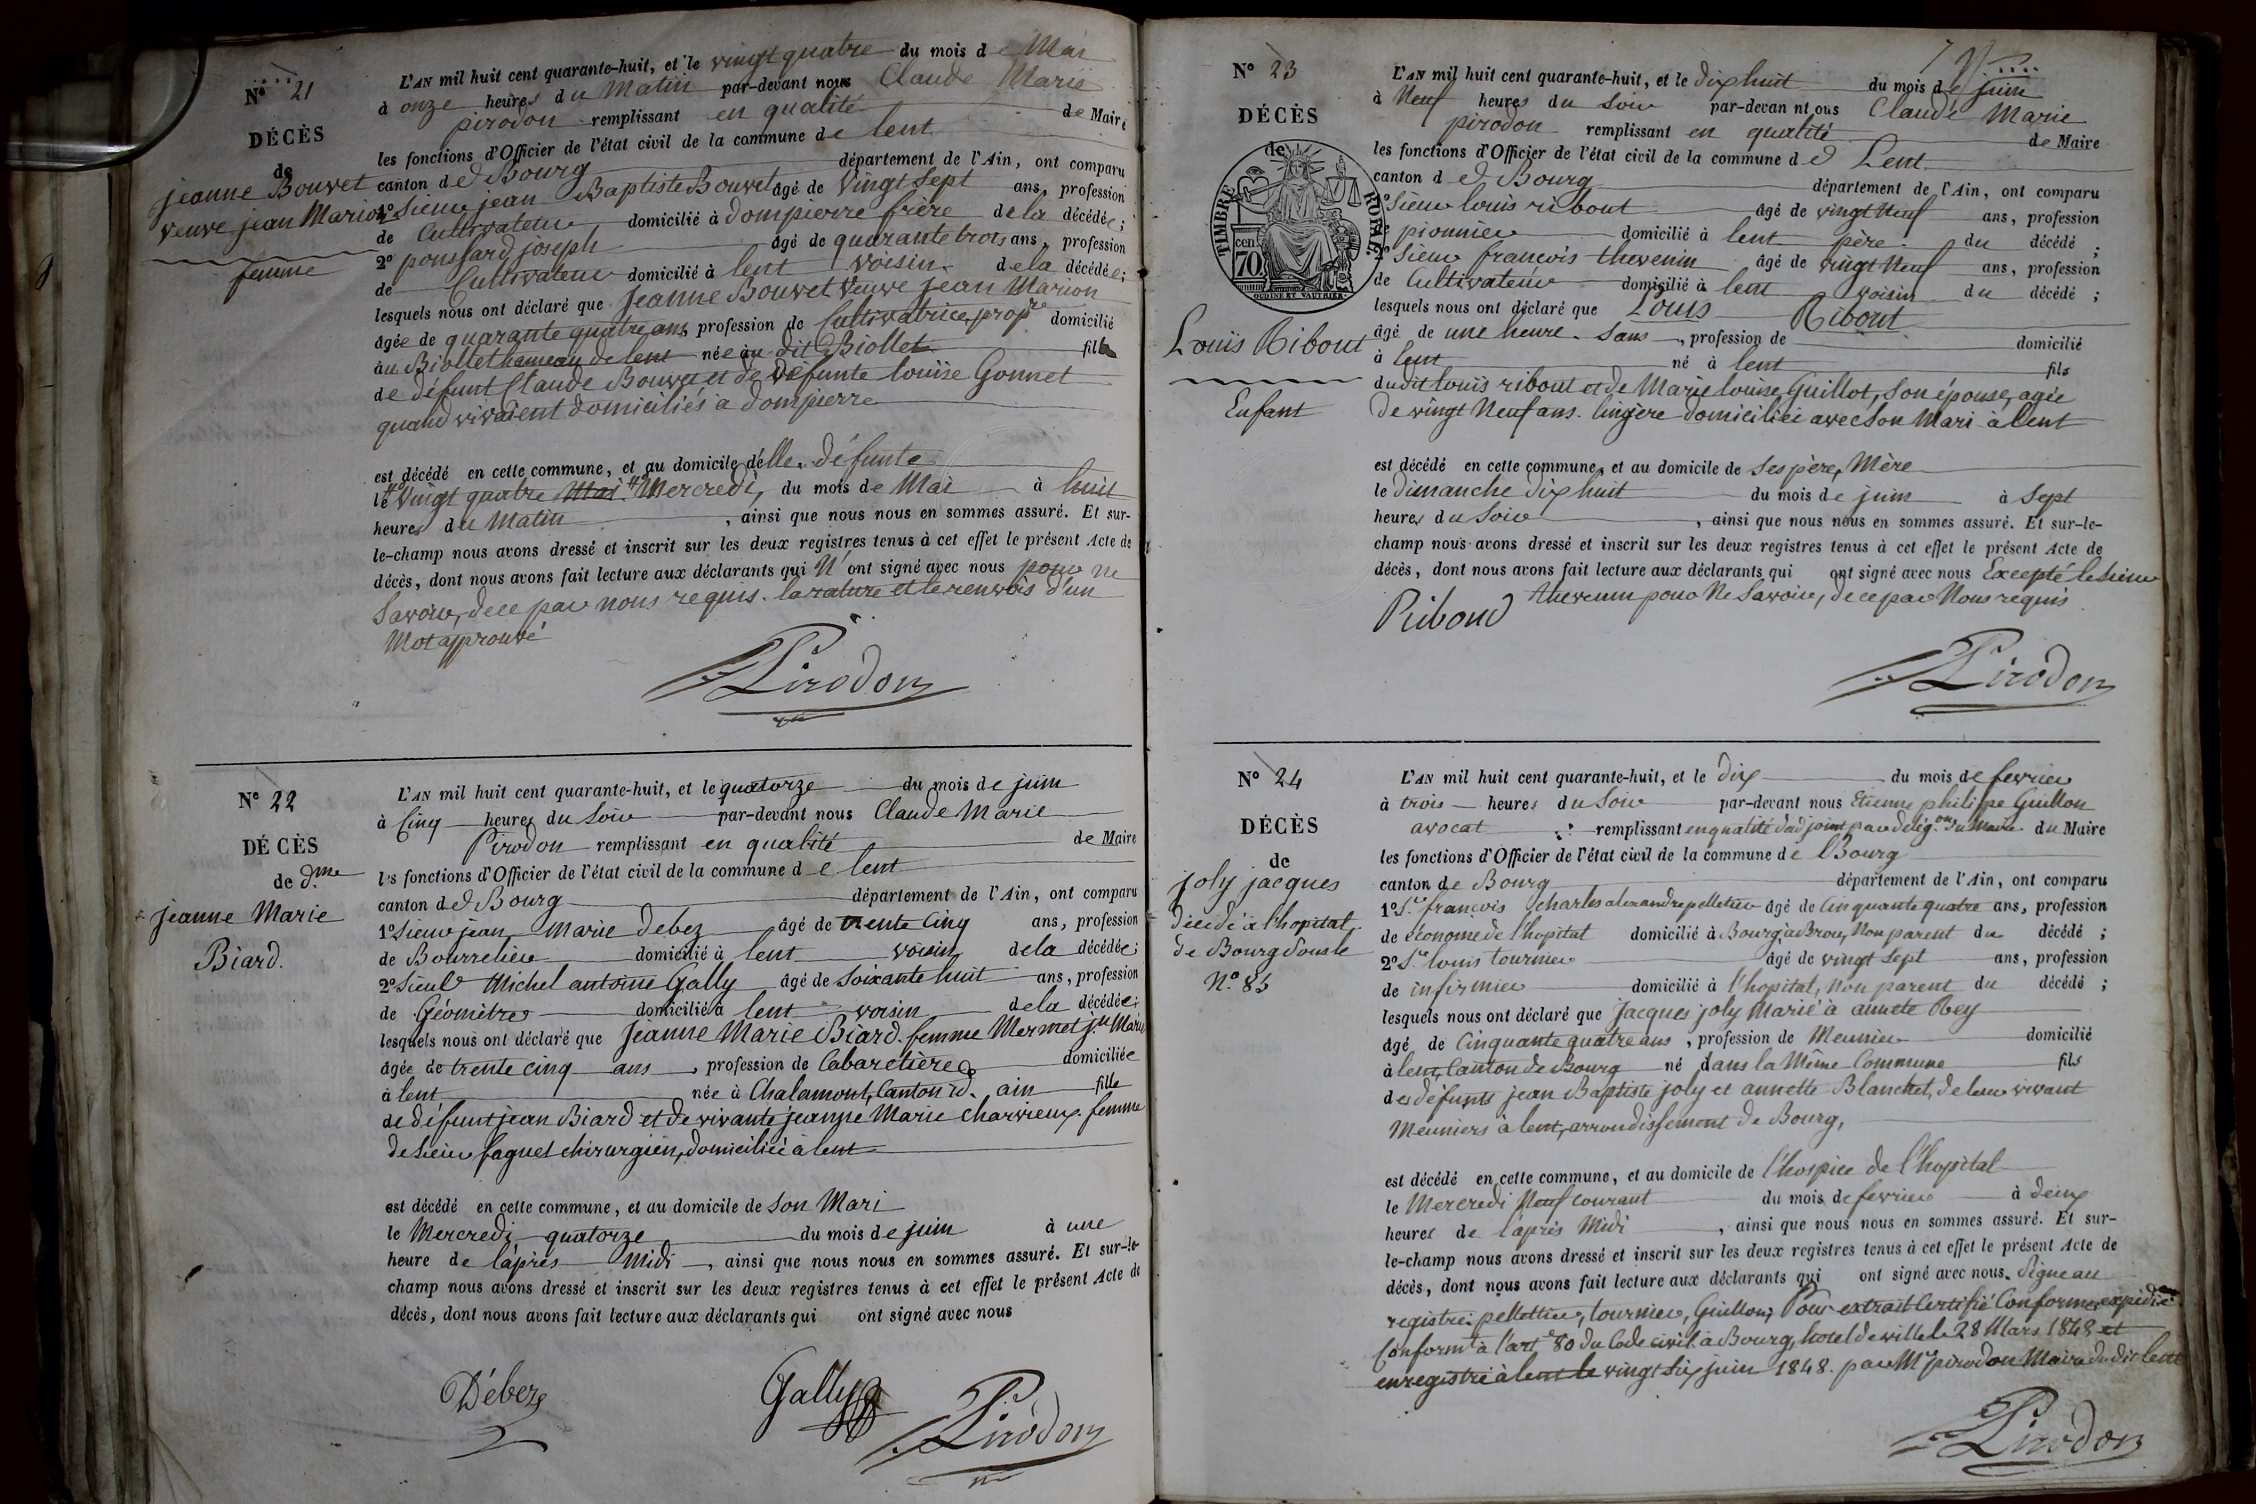 N° 21
DÉCÈS
de
jeanne Bouvet
veuve jean Marion
femme
L'AN mil huit cent quarante-huit, et le vingt quatre du mois de Mai
à onze heures du Matin par-devant nous Claude Marie
pirodon remplissant en qualité de Maire
les fonctions d'Officier de l'état civil de la commune de lent
canton de Bourg département de l'Ain, ont comparu
1° Sieur jean Baptiste Bouvet âgé de vingt sept ans, profession
de Cultivateur domicilié à dompierre frère de la décédée;
2° poussard joseph âgé de quarante trois ans, profession
de Cultivateur domicilié à lent voisin de la décédée;
lesquels nous ont déclaré que jeanne Bouvet veuve jean Marion
âgée de quarante quatre ans profession de Cultivatrice propre domicilié
au Biollet hameau de lent née au dit Biollet fille
de défunt Claude Bouvet et de défunte louise Gonnet
quand vivaient domiciliés a dompierre
est décédé en cette commune, et au domicile d'elle défunte
le vingt quatre Mai Mercredi, du mois de Mai à huit
heures du Matin, ainsi que nous nous en sommes assuré. Et sur-
le-champ nous avons dressé et inscrit sur les deux registres tenus à cet effet le présent Acte de
décès, dont nous avons fait lecture aux déclarants qui N'ont signé avec nous pour ne
Savoir, de ce par nous requis. la rature et le renvois d'un
Mot approuvé
Pirodon
N° 22
DÉCÈS
de dme
jeanne Marie
Biard.
L'AN mil huit cent quarante-huit, et le quatorze du mois de juin
à Cinq heures du Soir par-devant nous Claude Marie
Pirodon remplissant en qualité de Maire
les fonctions d'Officier de l'état civil de la commune de lent
canton de Bourg département de l'Ain, ont comparu
1° Sieur jean Marie Debez âgé de trente Cinq ans, profession
de Bourrelier domicilié à lent voisin de la décédée;
2° Sieur Michel antoine Gally âgé de Soixante huit ans, profession
de Géomètre domicilié à lent voisin de la décédée;
lesquels nous ont déclaré que jeanne Marie Biard. femme Mermet jn Marie
âgée de trente cinq ans, profession de Cabaretière domiciliée
à lent née à Chalamont, Canton id. ain fille
de défunt jean Biard et de vivante jeanne Marie Charvieux femme
de Sieur faguet chirurgien, domiciliée à lent
est décédé en cette commune, et au domicile de Son Mari
le Mercredi quatorze du mois de juin à une
heure de l'après Midi, ainsi que nous nous en sommes assuré. Et sur-le-
champ nous avons dressé et inscrit sur les deux registres tenus à cet effet le présent Acte de
décès, dont nous avons fait lecture aux déclarants qui ont signé avec nous
Débez
Gally
Pirodon
N° 23
DÉCÈS
de
TIMBRE ROYAL
70 cen
OUDINE ET VAUTHIER
Louis Ribout
Enfant
L'AN mil huit cent quarante-huit, et le dix huit du mois de juin
à Neuf heures du Soir par-devan nt ous Claude Marie
pirodon remplissant en qualité de Maire
les fonctions d'Officier de l'état civil de la commune de Lent
canton de Bourg département de l'Ain, ont comparu
Sieur louis ribout âgé de vingt Neuf ans, profession
pionnier domicilié à lent père du décédé;
2° Sieur françois thevenin âgé de vingt Neuf ans, profession
de Cultivateur domicilié à lent voisin du décédé;
lesquels nous ont déclaré que Louis Ribout
âgé de une heure. Sans, profession de domicilié
à lent né à lent fils
du dit louis ribout et de Marie louise Guillot, Son épouse, agée
De vingt Neuf ans. lingère domiciliée avec Son Mari à lent
est décédé en cette commune, et au domicile de Ses père, Mère
le dimanche dix huit du mois de juin à Sept
heures du Soir, ainsi que nous nous en sommes assuré. Et sur-le-
champ nous avons dressé et inscrit sur les deux registres tenus à cet effet le présent Acte de
décès, dont nous avons fait lecture aux déclarants qui ont signé avec nous Excepté le Sieur
thevenin pour Ne Savoir, de ce par Nous requis
Riboud
Pirodon
N° 24
DÉCÈS
de
joly jacques
décédé à l'hopital
de Bourg Sous le
N° 85
L'AN mil huit cent quarante-huit, et le dix du mois de fevrier
à trois heures du Soir par-devant nous Etienne philippe Guillon
avocat remplissant en qualité d'adjoint par délégon du Maire du Maire
les fonctions d'Officier de l'état civil de la commune de Bourg
canton de Bourg département de l'Ain, ont comparu
1° Sr françois Charles alexandre pelletier âgé de Cinquante quatre ans, profession
de économe de l'hopital domicilié à Bourg, à Brou, Non parent du décédé;
2° Sr louis tournier âgé de vingt Sept ans, profession
de infirmier domicilié à l'hopital, Non parent du décédé;
lesquels nous ont déclaré que jacques joly Marié à annete Rey
âgé de Cinquante quatre ans, profession de Meunier domicilié
à lent, Canton de Bourg né dans la Même Commune fils
des défunts jean Baptiste joly et annette Blanchet, de leur vivant
Meuniers à lent, arrondissement de Bourg,
est décédé en cette commune, et au domicile de l'hospice de l'hopital
le Mercredi Neuf courant du mois de fevrier à deux
heures de l'après Midi, ainsi que nous nous en sommes assuré. Et sur-
le-champ nous avons dressé et inscrit sur les deux registres tenus à cet effet le présent Acte de
décès, dont nous avons fait lecture aux déclarants qui ont signé avec nous. Signé au
registre: pelletier, tournier, Guillon; Pour extrait Certifié Conforme, expédié
Conformt à l'art 80 du Code civil à Bourg, hotel de ville le 28 Mars 1848 et
enregistré à lent le vingt Six juin 1848. par Mr pirodon Maire du dit lent
Pirodon